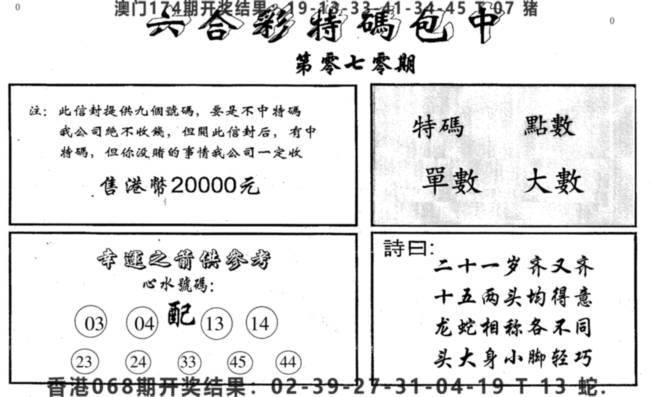 澳门174期开奖结果：19-13-33-41-34-45 T 07 猪
六合彩特碼包中
第零七零期
注：此信封提供九個號碼，要是不中特碼
我公司绝不收錢，但開此信封后，有中
特碼，但你没賭的事情我公司一定收
售港幣20000元
特碼 點數
單數 大數
幸運之箭供參考
心水號碼：
03 04 配 13 14
23 24 33 45 44
詩曰：
二十一岁齐又齐
十五两头均得意
龙蛇相称各不同
头大身小脚轻巧
香港068期开奖结果：02-39-27-31-04-19 T 13 蛇.